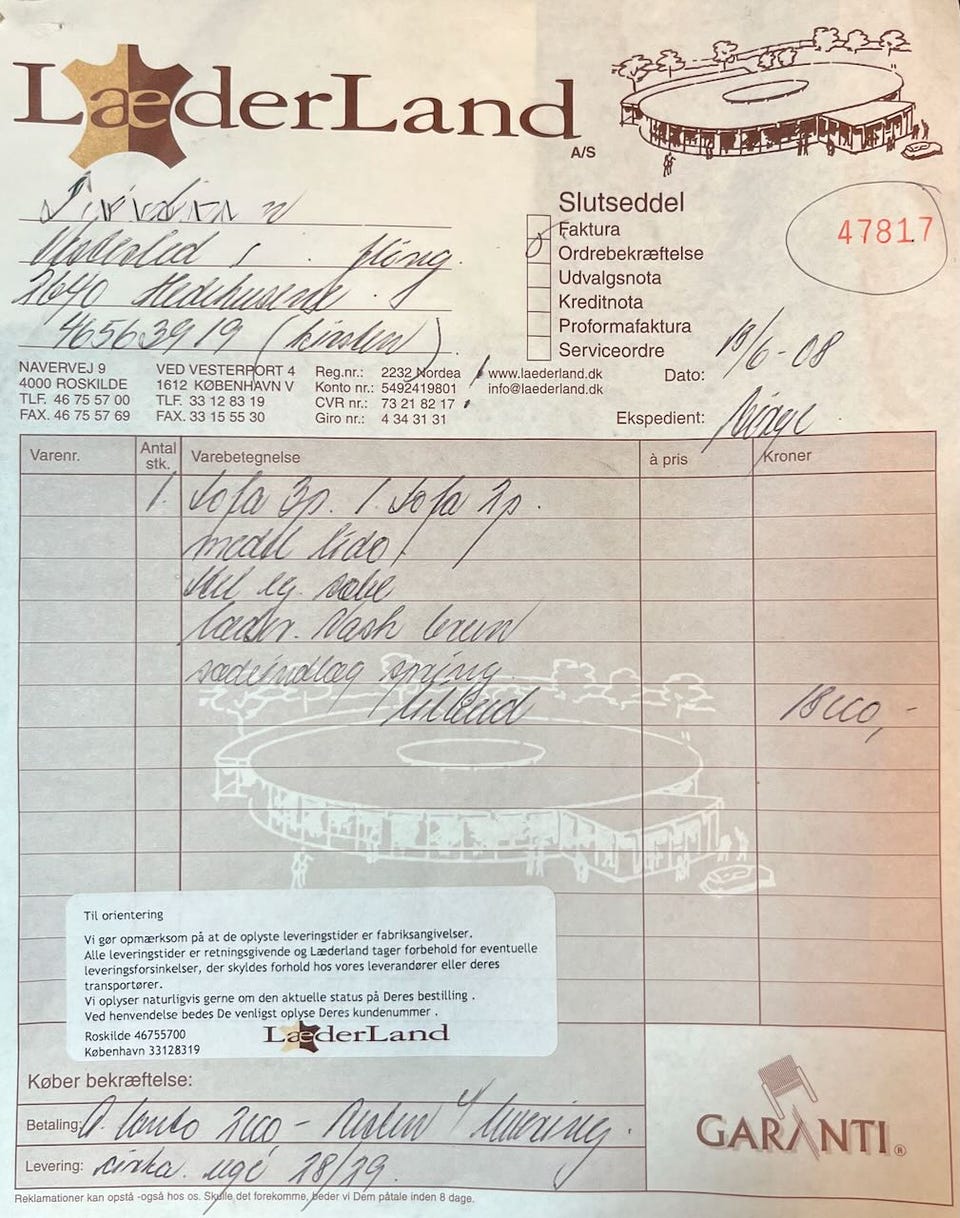 LæderLand
A/S
Slutseddel
47817
Faktura
Ordrebekræftelse
Udvalgsnota
Kreditnota
Proformafaktura
Serviceordre
Fløng.
2640 Hedehusene.
46563919 (Kirsten).
NAVERVEJ 9
4000 ROSKILDE
TLF. 46 75 57 00
FAX. 46 75 57 69
VED VESTERPORT 4
1612 KØBENHAVN V
TLF. 33 12 83 19
FAX. 33 15 55 30
Reg.nr.: 2232 Nordea
Konto nr.: 5492419801
CVR nr.: 73 21 82 17
Giro nr.: 4 34 31 31
www.laederland.dk
info@laederland.dk
Dato: /6-08
Ekspedient:
Varenr. Antal stk. Varebetegnelse à pris Kroner
1. Sofa 3p. 1. Sofa 2p.
model Lido.
Stel eg. sæbe
læder. Vash brun
sædeindlæg spring
tilbud 18000,-
Til orientering
Vi gør opmærksom på at de oplyste leveringstider er fabriksangivelser.
Alle leveringstider er retningsgivende og Læderland tager forbehold for eventuelle
leveringsforsinkelser, der skyldes forhold hos vores leverandører eller deres
transportører.
Vi oplyser naturligvis gerne om den aktuelle status på Deres bestilling .
Ved henvendelse bedes De venligst oplyse Deres kundenummer .
Roskilde 46755700
København 33128319
LæderLand
Køber bekræftelse:
Betaling: A. konto 2000 - Resten v/ levering.
Levering: cirka. uge 28/29.
GARANTI®
Reklamationer kan opstå -også hos os. Skulle det forekomme, beder vi Dem påtale inden 8 dage.